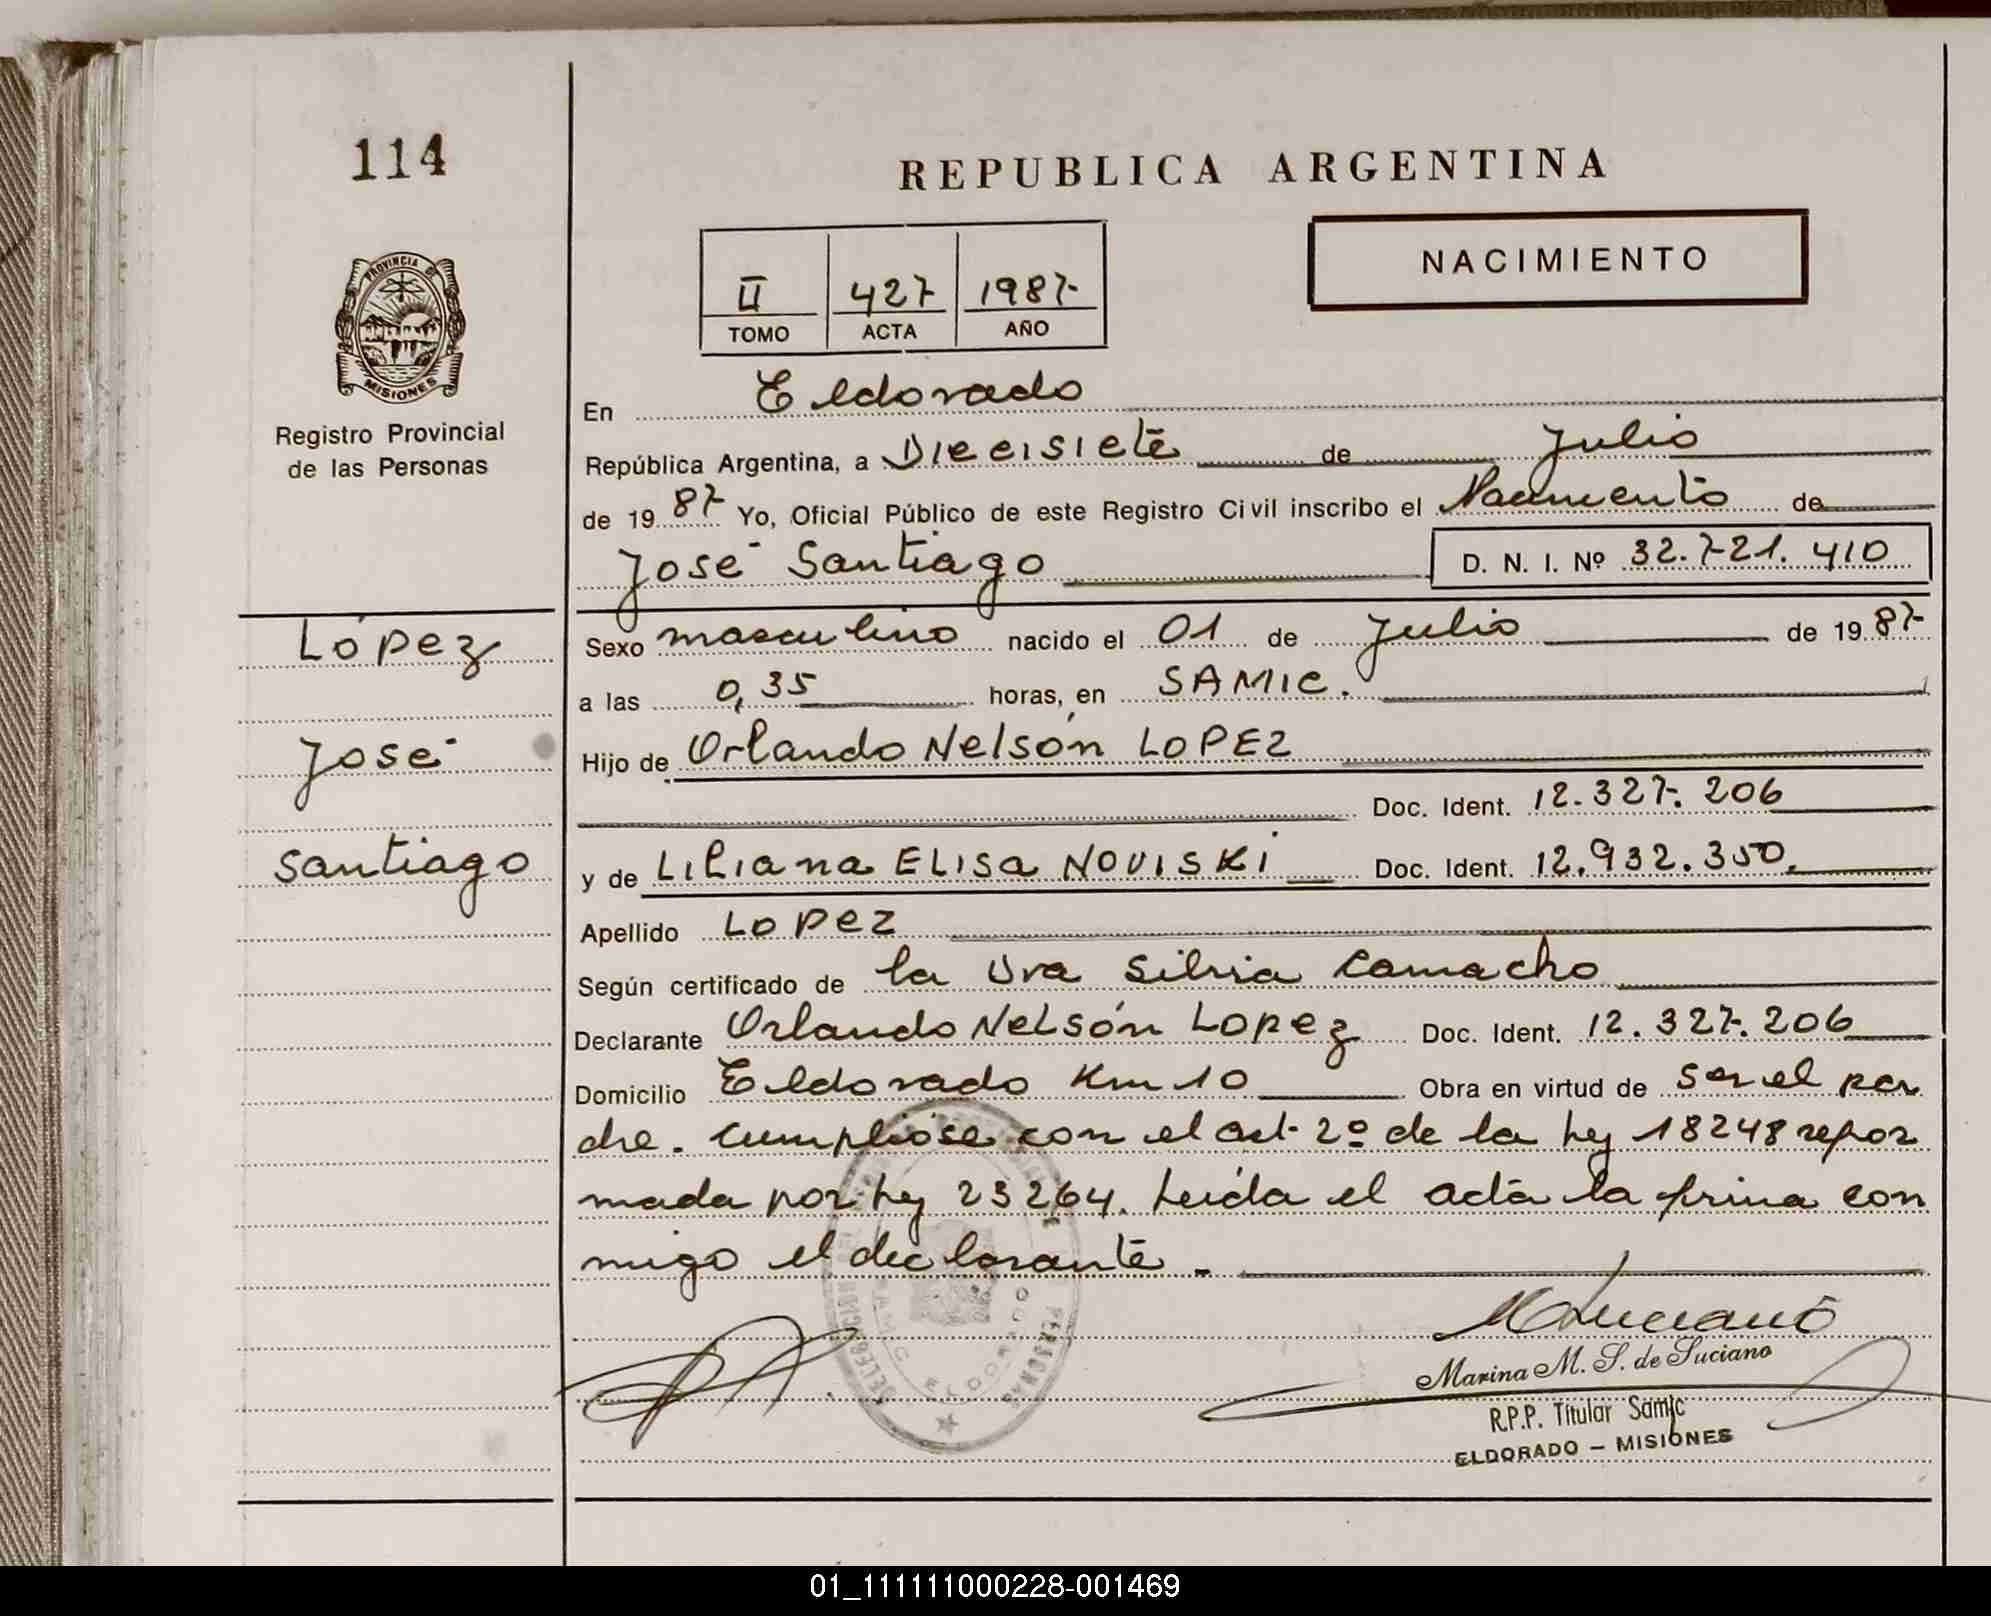 114
REPUBLICA ARGENTINA
PROVINCIA DE
MISIONES
Registro Provincial
de las Personas
II 427 1987
TOMO ACTA AÑO
NACIMIENTO
En Eldorado
República Argentina, a Diecisiete de Julio
de 1987 Yo, Oficial Público de este Registro Civil inscribo el Nacimiento de
José Santiago D. N. I. Nº 32.721.410
López
José
Santiago
Sexo masculino nacido el 01 de Julio de 1987
a las 0,35 horas, en SAMIC.
Hijo de Orlando Nelsón LOPEZ
Doc. Ident. 12.327.206
y de Liliana ELISA NOVISKI Doc. Ident. 12.932.350.
Apellido LOPEZ
Según certificado de la Dra Silvia Camacho
Declarante Orlando Nelsón Lopez Doc. Ident. 12.327.206
Domicilio Eldorado Km 10 Obra en virtud de ser el pa
dre. Cumplióse con el art. 2º de la ley 18248 refor
mada por ley 23264. Leída el acta la firma con
migo el declarante.
MLuciano
Marina M. S. de Luciano
R.P.P. Titular Samic
ELDORADO - MISIONES
DELEGACION
PERSONAS
ELDORADO
01_111111000228-001469